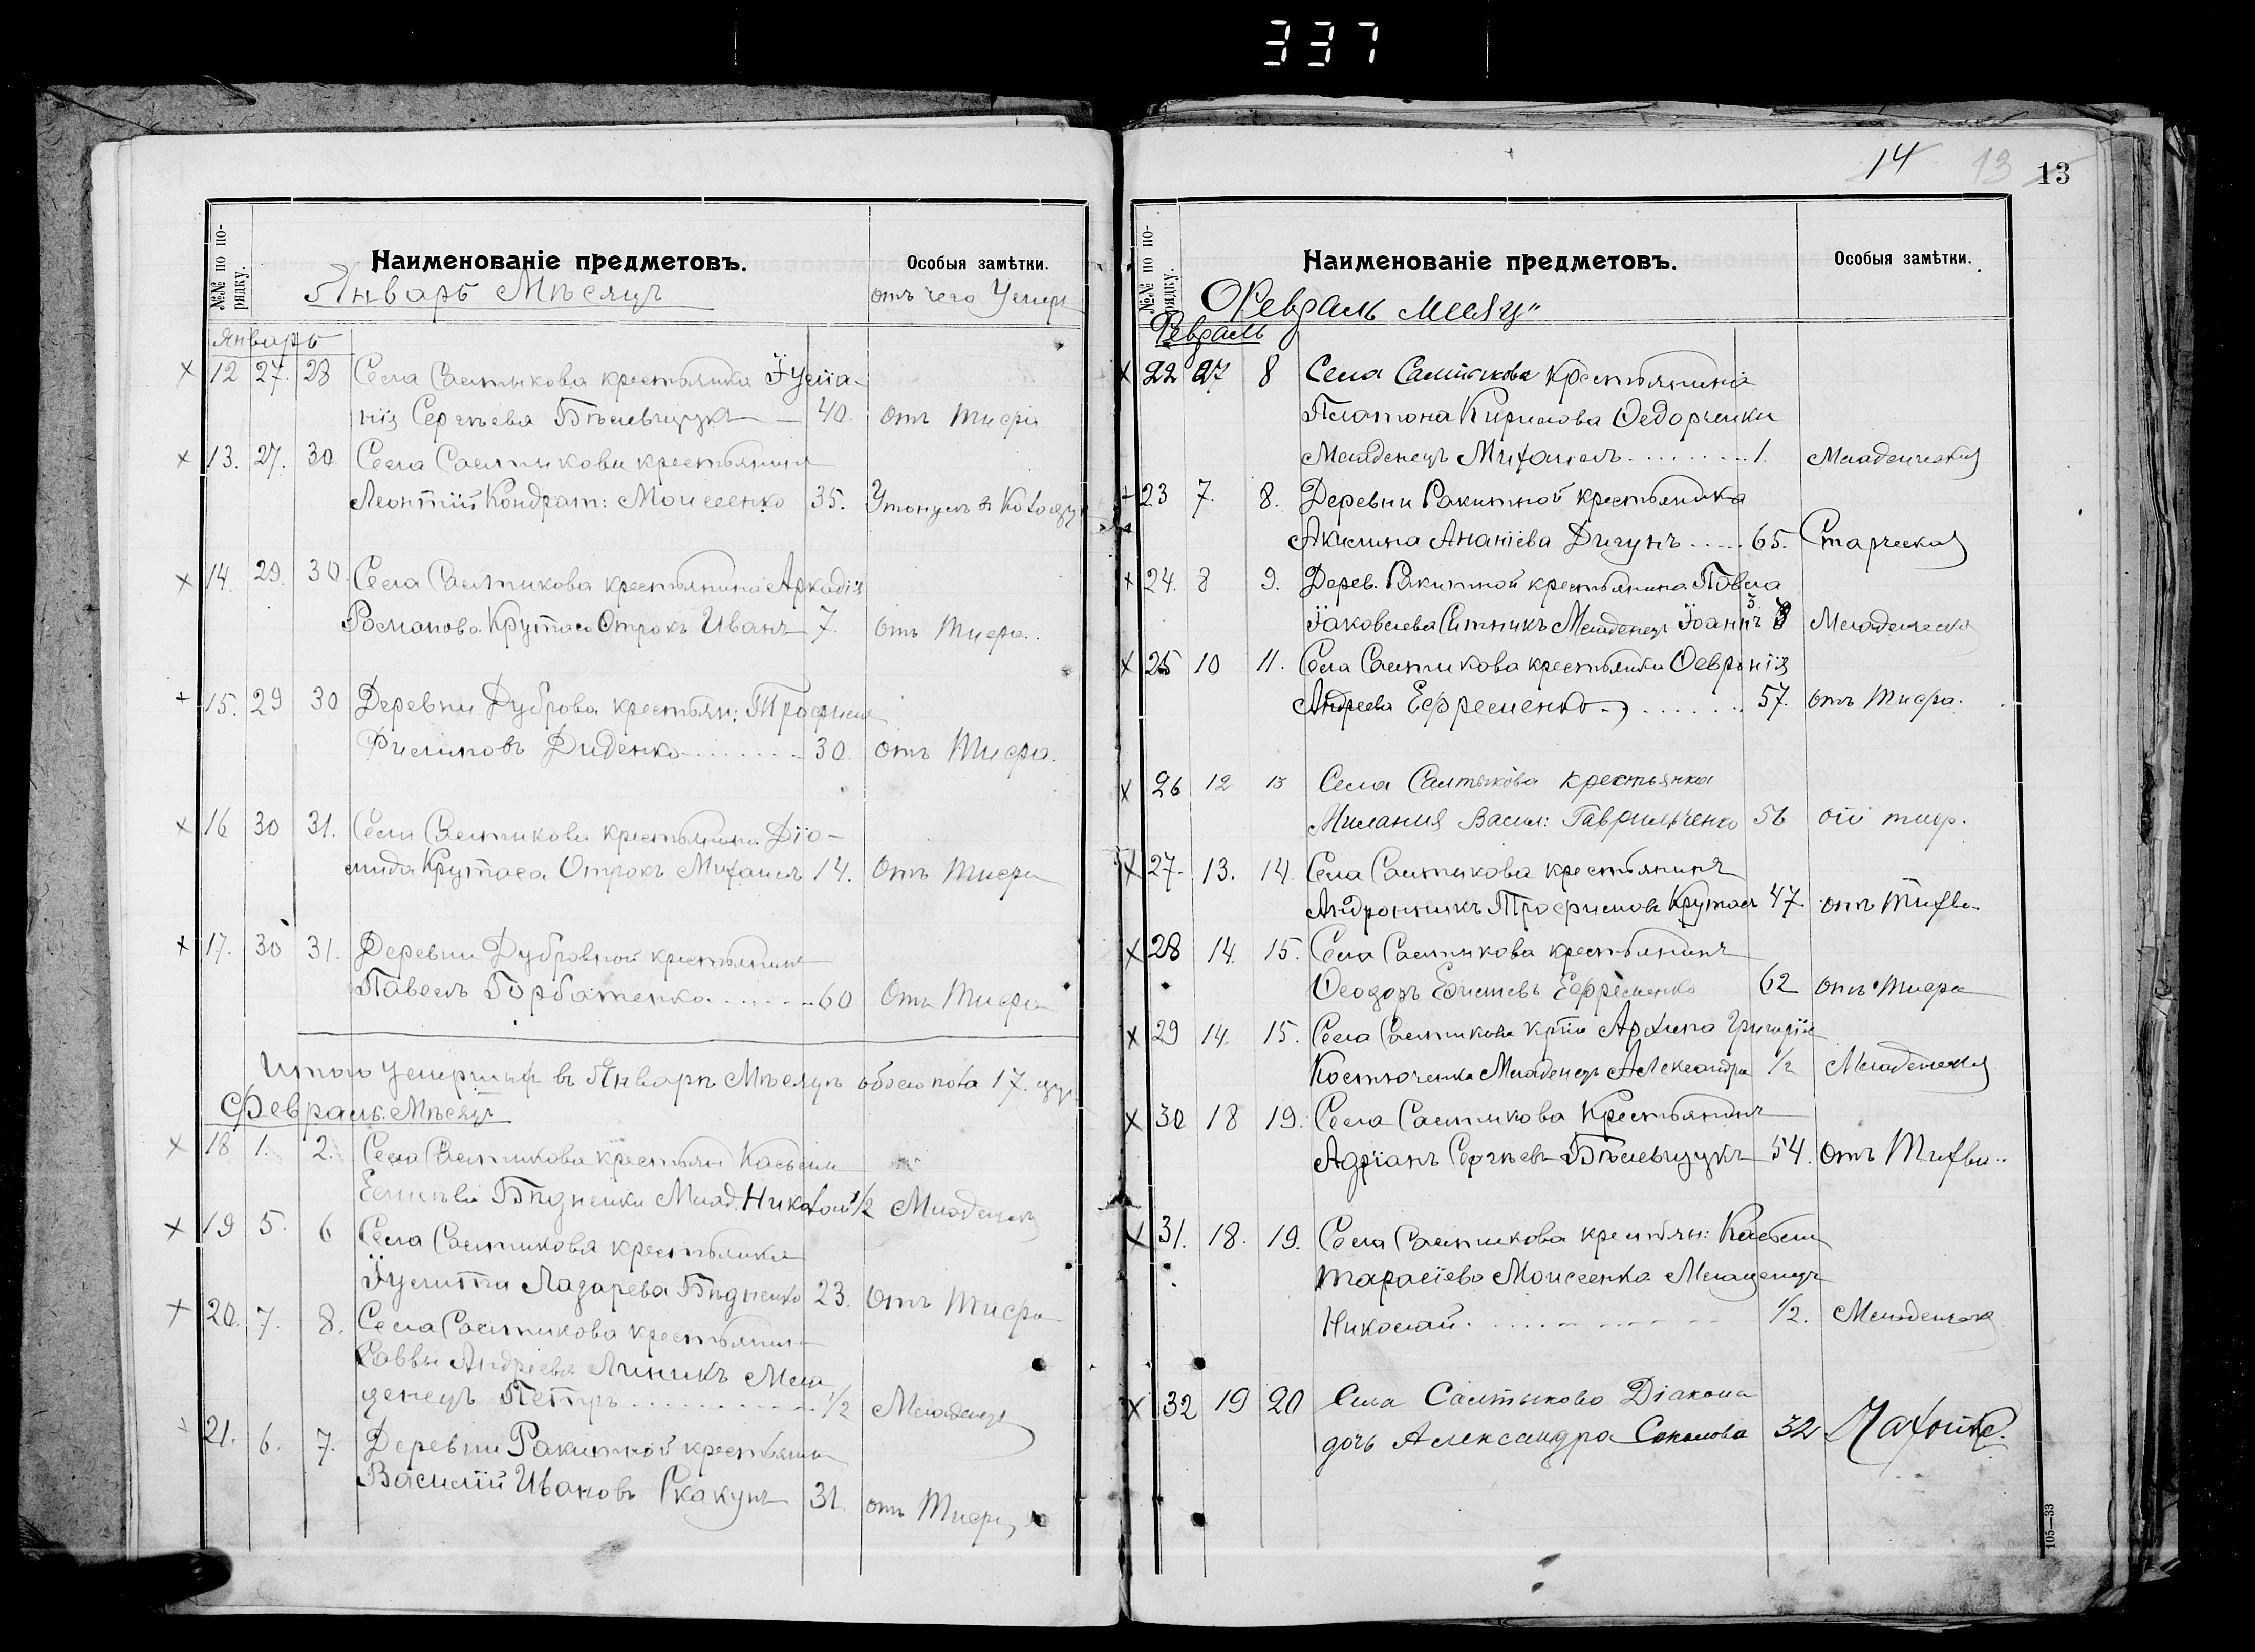 337
14 13 13
№№ по по-
рядку.
Наименованіе предметовъ.
Особыя замѣтки.
Январь Мѣсяцъ
отъ чего Умеръ
Январь
12 27. 28 Села Салтыкова крестьянка Іуліа-
нія Сергѣева Бѣлевцукъ 40. отъ Тифа
13. 27. 30 Села Салтыкова крестьянин
Леонтій Кондрат: Моисеенко 35. Утонулъ в
14. 29. 30. Села Салтикова крестьянина Аркадія
Романова Крутаса Отрокъ Иванъ 7. отъ Тифа..
15. 29 30 Деревни Дуброва крестьян: Трофима
Филиповъ Диденко 30. отъ Тифа.
16 30 31. Села Салтикова крестьянина Діо-
мида Крутаса Отрокъ Михаилъ 14. Отъ Тифа
17. 30 31. Деревни Дубровной крестьянинъ
Павелъ Горбатенко 60 Отъ Тифа
Итого умершихъ въ Январѣ Мѣсяцѣ обоего пола 17.
Февраль Мѣсяцъ
18 1. 2. Села Салтикова крестьян
Бѣдненка Млад. Николай 1/2 Младенч
19 5. 6 Села Салтикова крестьянка
Іулитта Лазарева Бѣдненко 23. Отъ Тифа
20. 7. 8. Села Салтикова крестьянина
Саввы Андреева Линикъ Мла
денецъ Петръ 1/2 Младенч
21. 6. 7. Деревни Ракитной крестьянин
Василій Ивановъ Скакунъ 31. отъ Тифа
№№ по по-
рядку.
Наименованіе предметовъ.
Особыя замѣтки.
Февраль месяц"
Февраль
22 27 8 Села Салтыкова Крестьянина
Платона Кирилова Ѳедорченки
Младенецъ Михаилъ 1. Младенческая
23 7. 8. Деревни Ракитной крестьянка
Акилина Ананіева Дигунъ 65. Старческая
24. 8 9. Дерев. Ракитной крестьянина Павла
Іаковлева Ситникъ Младенец Іоаннъ 3 Младенческа
25 10 11. Села Салтикова крестьянка Ѳевронія
Андреева Ефременко 57. отъ Тифа.
26 12 13 Села Салтыкова крестьянка
Милания Васил: Гаврильченко 56 от тиф.
27. 13. 14. Села Салтыкова крестьянинъ
Андронникъ Трофимовъ Крутасъ 47. отъ Тифа.
28 14. 15. Села Салтыкова крестьянинъ
Ѳеодоръ Ефременко 62 отъ Тифа
29 14. 15. Села Салтикова Архипа Григорія
Костюченка Младенецъ Александра 1/2 Младенческая
30 18 19. Села Салтикова Крестьянинъ
Адріанъ Сергѣевъ Бѣлевцукъ 54. отъ Тифа..
31. 18. 19. Села Салтикова крестьян:
Тарасіева Моисеенка Младенецъ
Николай. 1/2. Младенческа
32 19 20 Села Салтыково Діакона
дочь Александра Соколова 32 Чахотка.
105—33